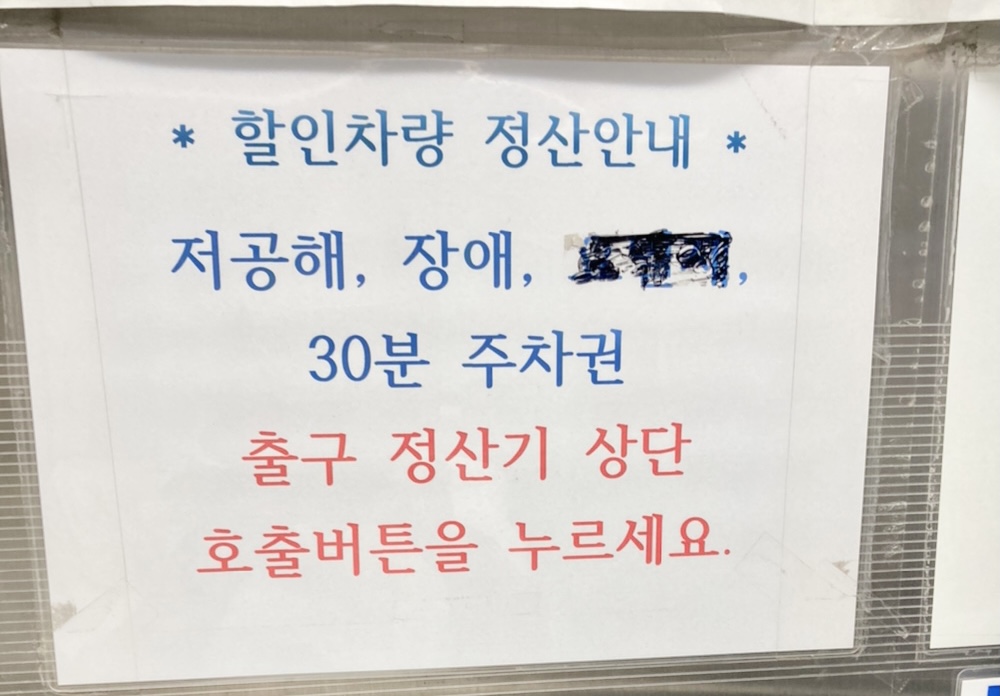 * 할인차량 정산안내 *
저공해, 장애, ,
30분 주차권
출구 정산기 상단
호출버튼을 누르세요.